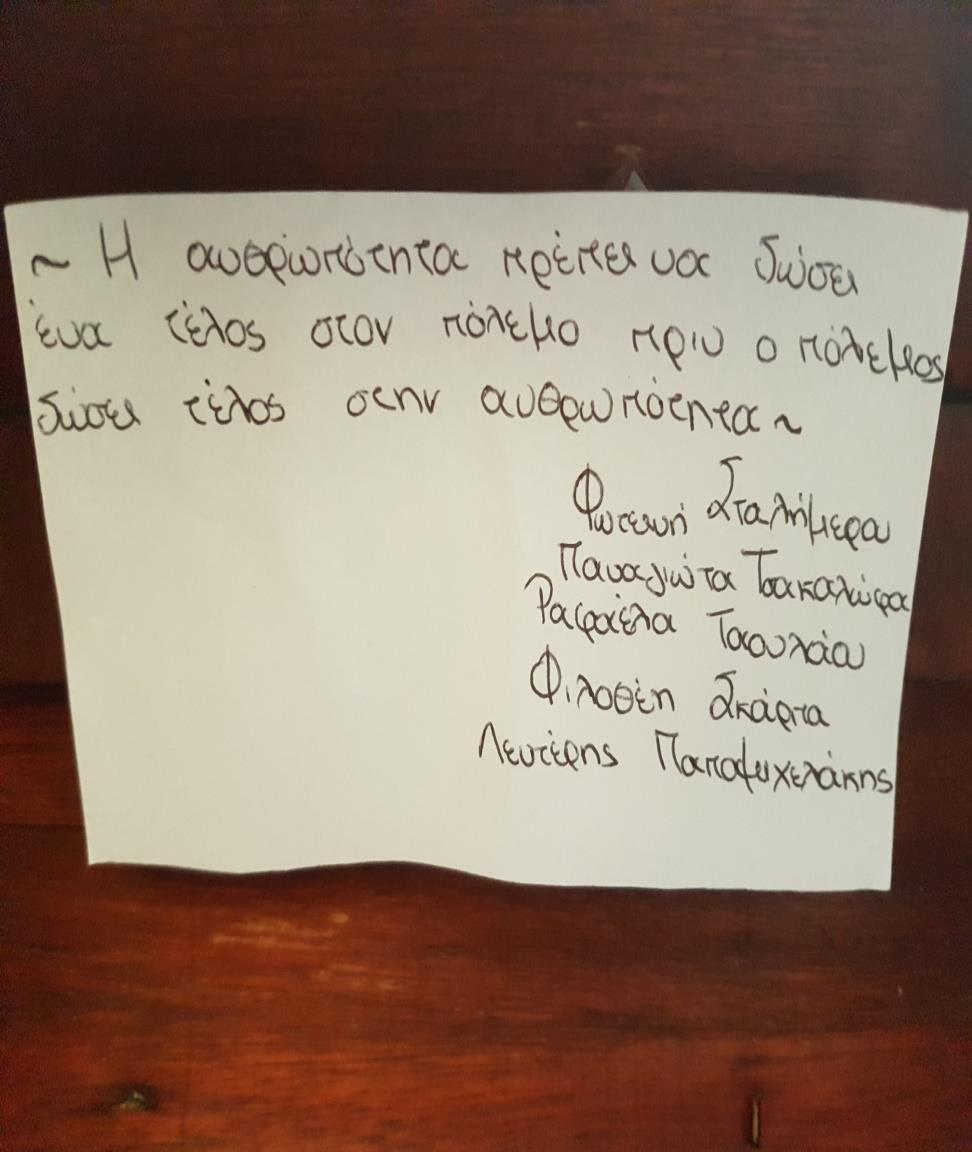 ~ Η ανθρωπότητα πρέπει να δώσει
ένα τέλος στον πόλεμο πριν ο πόλεμος
δώσει τέλος στην ανθρωπότητα ~
Φωτεινή Σταλήμερα
Παναγιώτα Τσακαλώφα
Ραφαέλα Τσουλάαι
Φιλοθέη Σκάρπα
Λευτέρης Παπαψυχελάκης